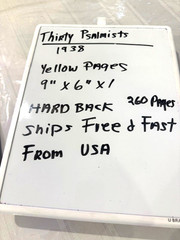 Thirty Psalmists
1938
Yellow Pages
9" x 6" x 1
HARD BACK 260 Pages
Ships Free & Fast
From USA